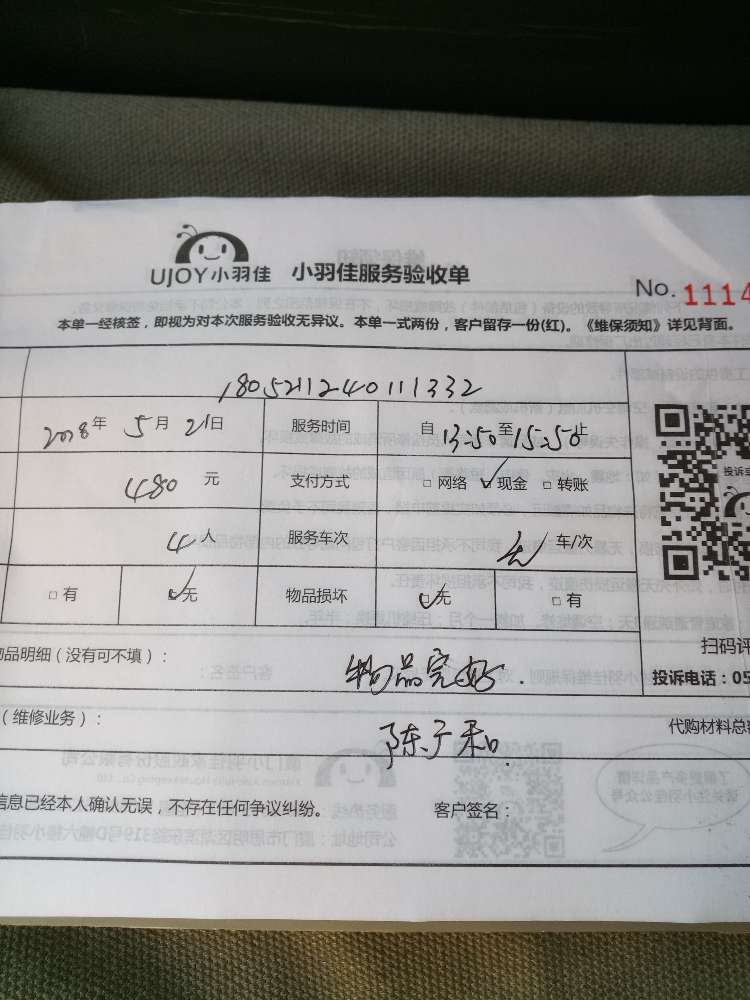 UJOY小羽佳 小羽佳服务验收单
No. 1114
本单一经核签，即视为对本次服务验收无异议。本单一式两份，客户留存一份(红)。《维保须知》详见背面。
1805211240111332
2018年 5月 21日 服务时间 自 13:50 至 15:50 止
480 元 支付方式 □ 网络 ✓ 现金 □ 转账
投诉
4 人 服务车次 车/次
□ 有 ☑ 无 物品损坏 ☑ 无 □ 有
品明细（没有可不填）： 物品完好.
扫码评
投诉电话：05
（维修业务）： 陈广和.
代购材料总
信息已经本人确认无误，不存在任何争议纠纷。 客户签名：